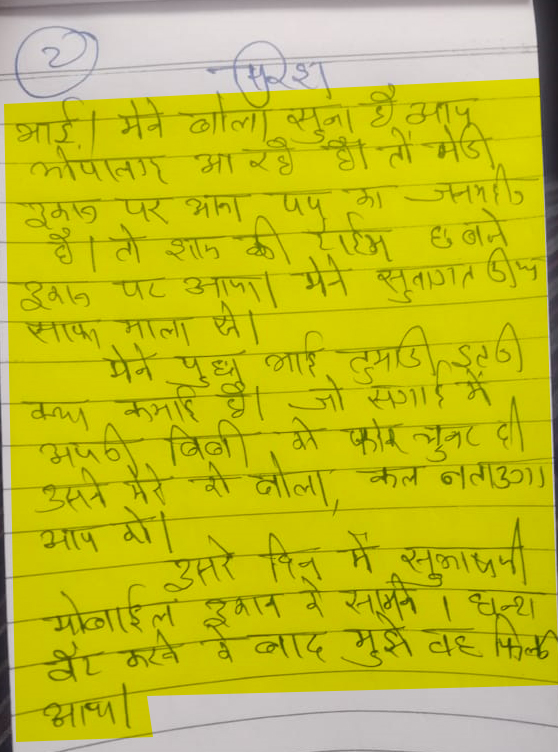 2
भाई। मेने बोला सुना है आप
आ रहे है। तो मेरी
दुकान पर आना पपु का जनमदीन
है। तो शाम की टाईम 6 बजे
दुकान पर आना। मेने सुवागत कीया
साफा माला से।
मेने पुछा भाई तुमारी इतनी
क्या कमाई है। जो सगाई में
अपनी बिबी को फोर चुनर दी
उसने मेरे को बोला, कल बताउगा
आप को।
दुसरे दिन में सुभाषजी
मोबाईल दुकान के सामने। घन्टा
वैट करने के बाद मुझे वह
आया।